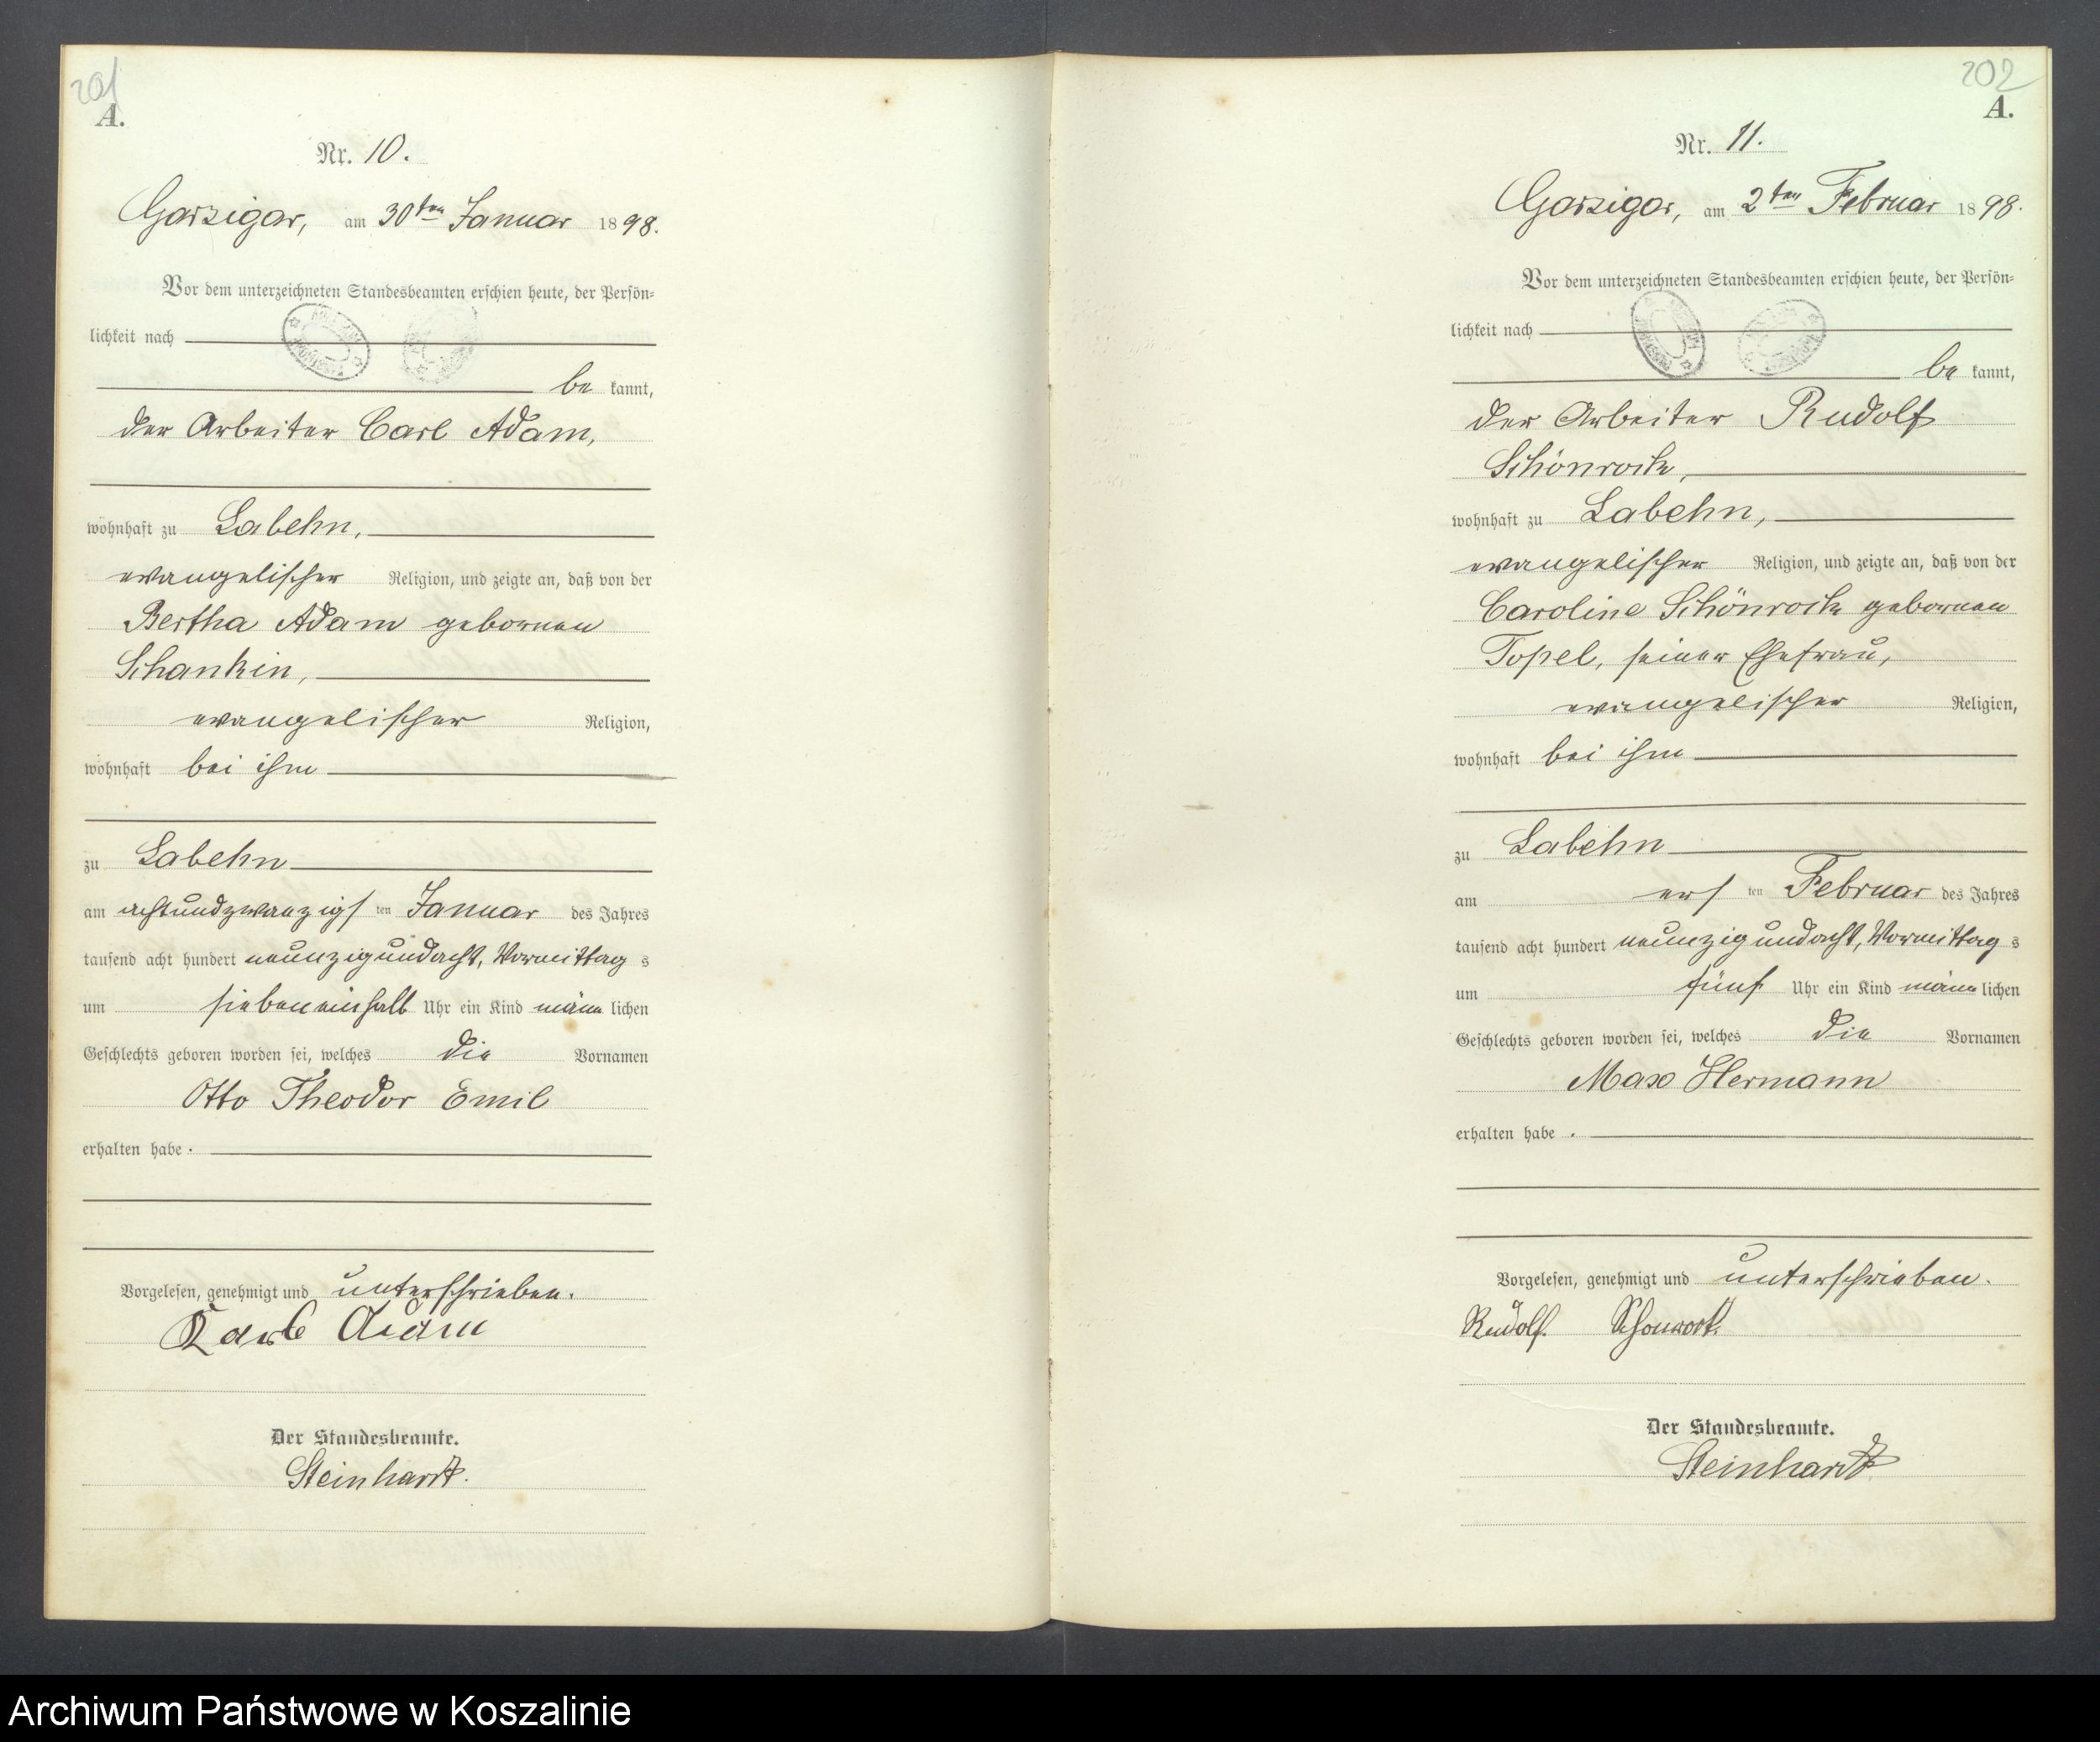 201
A.
Nr. 10.
Garzigar, am 30ten Januar 1898.
Vor dem unterzeichneten Standesbeamten erschien heute, der Persön-
lichkeit nach
be kannt,
der Arbeiter Carl Adam,
wohnhaft zu Labehn,
evangelischer Religion, und zeigte an, daß von der
Bertha Adam geborenen
Schankin,
evangelischer Religion,
wohnhaft bei ihm
zu Labehn
am achtundzwanzigs ten Januar des Jahres
tausend acht hundert neunzigundacht, Vormittag s
um siebeneinhalb Uhr ein Kind männ lichen
Geschlechts geboren worden sei, welches die Vornamen
Otto Theodor Emil
erhalten habe.
Vorgelesen, genehmigt und unterschrieben.
Karl Adam
Der Standesbeamte.
Steinhardt.
202
A.
Nr. 11.
Garzigar, am 2ten Februar 1898.
Vor dem unterzeichneten Standesbeamten erschien heute, der Persön-
lichkeit nach
be kannt,
der Arbeiter Rudolf
Schönrock,
wohnhaft zu Labehn,
evangelischer Religion, und zeigte an, daß von der
Caroline Schönrock geborenen
Topel, seiner Ehefrau,
evangelischer Religion,
wohnhaft bei ihm
zu Labehn
am ers ten Februar des Jahres
tausend acht hundert neunzigundacht, Vormittag s
um fünf Uhr ein Kind männ lichen
Geschlechts geboren worden sei, welches die Vornamen
Max Hermann
erhalten habe.
Vorgelesen, genehmigt und unterschrieben.
Rudolf. Schonrock.
Der Standesbeamte.
Steinhardt
Archiwum Państwowe w Koszalinie